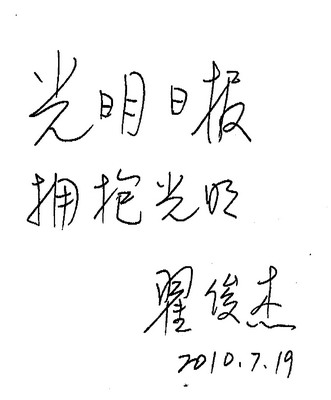 光明日报
拥抱光明
翟俊杰
2010.7.19